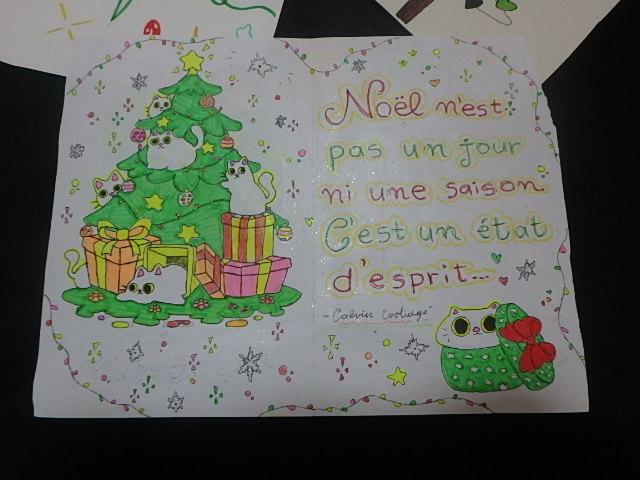 Noël n'est
pas un jour
ni une saison.
C'est un état
d'esprit...
~ Calvin Coolidge